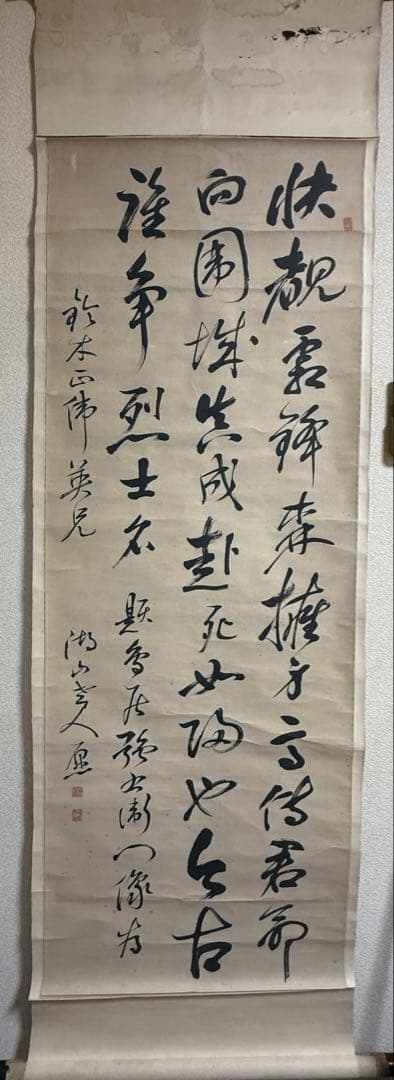 快覩霜鋒森擁身高傳君命
向圍城真成赴死如歸也今古
誰争烈士名 題鳥居強右衛門像為
鈴木正偉英兄 湖山老人愿